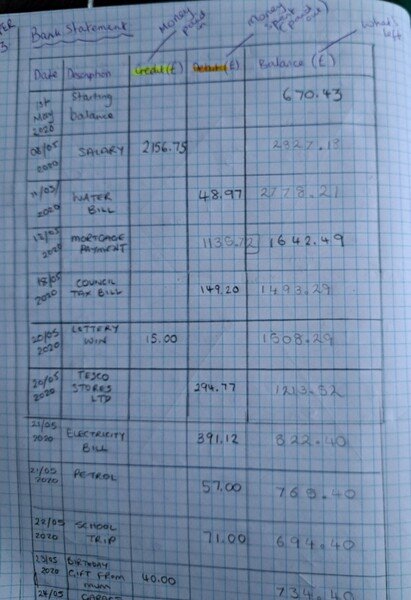 Bank Statement
Money paid in
Money spent (paid out)
What's left
Date Description Credit(£) Debit(£) Balance (£)
1st May 2020 Starting balance 670.43
08/05 2020 SALARY 2156.75 2827.18
11/05/ 2020 WATER BILL 48.97 2778.21
12/05 2020 MORTGAGE PAYMENT 1135.72 1642.49
18/05 2020 COUNCIL TAX BILL 149.20 1493.29
20/05 2020 LOTTERY WIN 15.00 1508.29
20/05 2020 TESCO STORES LTD 294.77 1213.52
21/05 2020 ELECTRICITY BILL 391.12 822.40
21/05 2020 PETROL 57.00 765.40
22/05 2020 SCHOOL TRIP 71.00 694.40
23/05 2020 BIRTHDAY GIFT FROM MUM 40.00 734.40
24/05 GARAGE